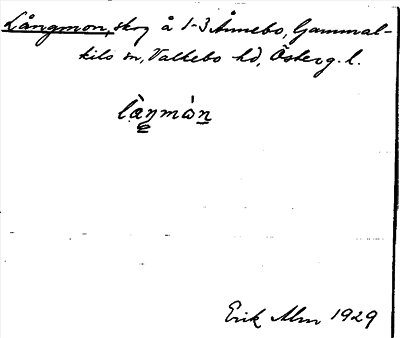 Långmon, skog å 1-3 Ånnebo, Gammal-
kils sn, Valkebo hd, Österg. l.
Erik Alm 1929